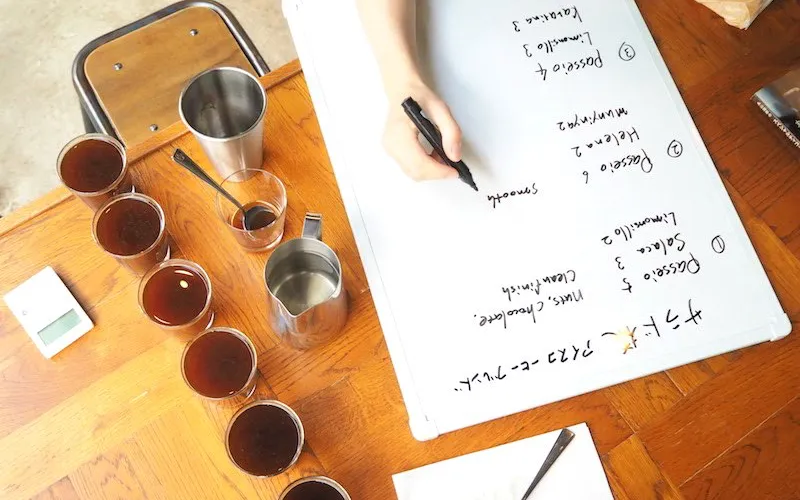 サードウェーブ アイスコーヒーブレンド
① Passeio 5
Salaca 3
Limonsillo 2
nuts, chocolate,
Clean finish
② Passeio 6
Helena 2
Munyinya 2
smooth
③ Passeio 4
Limonsillo 3
Karanina 3